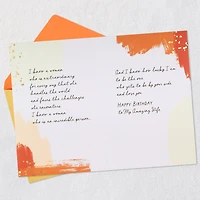 I know a woman
who is extraordinary
for every way that she
handles the world
and faces the challenges
she encounters.
I know a woman
who is an incredible person...
And I know how lucky I am
to be the one
who gets to be by your side
and love you.
HAPPY BIRTHDAY
to My Amazing Wife